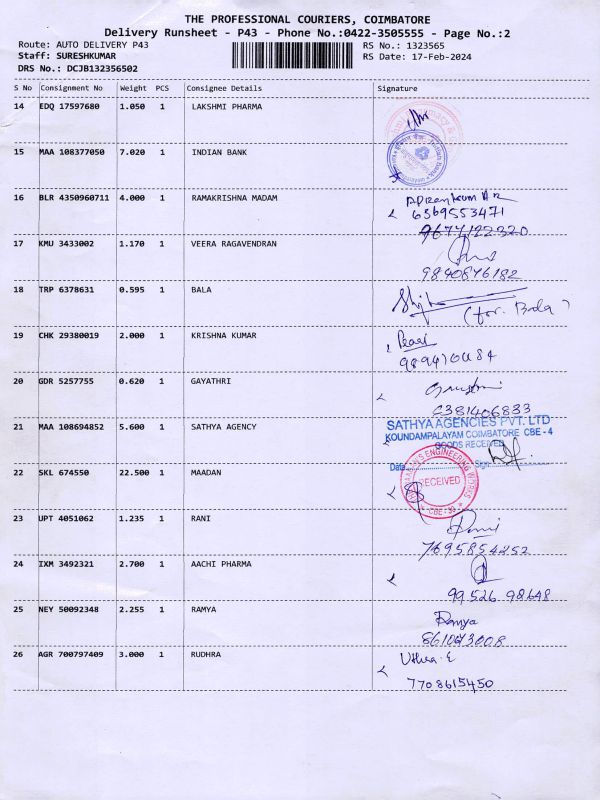 THE PROFESSIONAL COURIERS, COIMBATORE
Delivery Runsheet - P43 - Phone No.:0422-3505555 - Page No.:2
Route: AUTO DELIVERY P43 RS No.: 1323565
Staff: SURESHKUMAR RS Date: 17-Feb-2024
DRS No.: DCJB132356502
S No Consignment No Weight PCS Consignee Details Signature
14 EDQ 17597680 1.050 1 LAKSHMI PHARMA
15 MAA 108377050 7.020 1 INDIAN BANK
16 BLR 4350960711 4.000 1 RAMAKRISHNA MADAM
6369553471
9677122320
17 KMU 3433002 1.170 1 VEERA RAGAVENDRAN
9840876182
18 TRP 6378631 0.595 1 BALA
(for. Bala)
19 CHK 29380019 2.000 1 KRISHNA KUMAR
20 GDR 5257755 0.620 1 GAYATHRI
6381406833
21 MAA 108694852 5.600 1 SATHYA AGENCY
SATHYA AGENCIES PVT. LTD
KOUNDAMPALAYAM COIMBATORE CBE - 4
GOODS RECEIVED
Date Sign
22 SKL 674550 22.500 1 MAADAN
ENGINEERING WORKS
RECEIVED
23 UPT 4051062 1.235 1 RANI
Rani
7695854252
24 IXM 3492321 2.700 1 AACHI PHARMA
99526 98648
25 NEY 50092348 2.255 1 RAMYA
Ramya
26 AGR 700797409 3.000 1 RUDHRA
7708615450